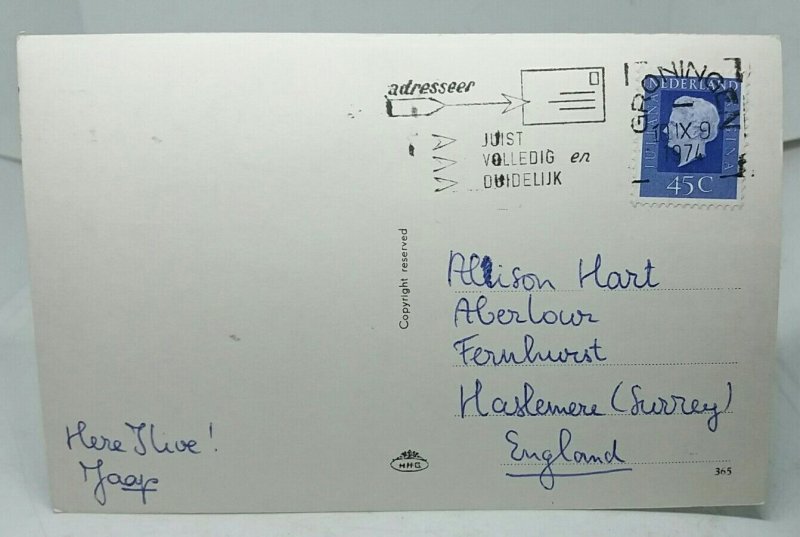 adresseer
JUIST
VOLLEDIG en
DUIDELIJK
GRONINGEN
IX 9
1974
NEDERLAND
JULIANA REGINA
45C
Copyright reserved
Allison Hart
Aberlour
Fernhurst
Haslemere (Surrey)
England
Here I live!
Jaap
HHG
365